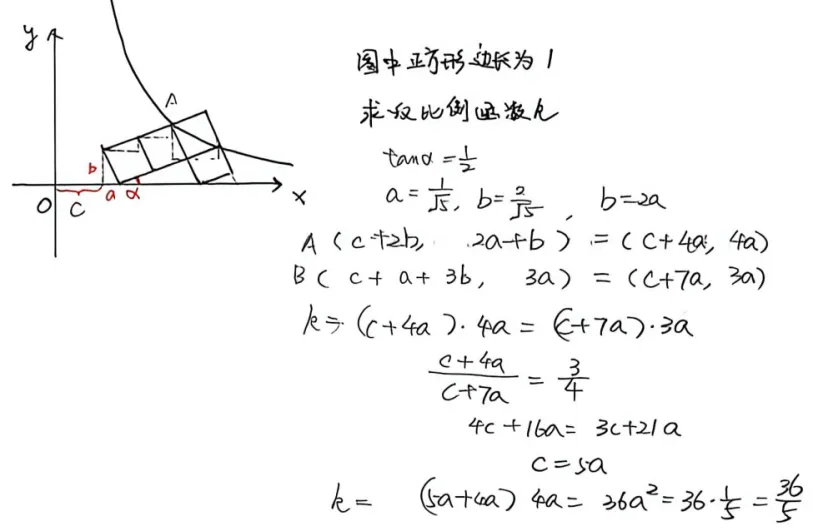 y
A
b
a α
O
C
x
图中正方形边长为1
求反比例函数k
tanα = 1/2
a = 1/√5, b = 2/√5, b = 2a
A (c+2b, 2a+b) = (c+4a, 4a)
B (c+a+3b, 3a) = (c+7a, 3a)
k = (c+4a)·4a = (c+7a)·3a
c+4a/c+7a = 3/4
4c+16a = 3c+21a
c = 5a
k = (5a+4a) 4a = 36a² = 36·1/5 = 36/5